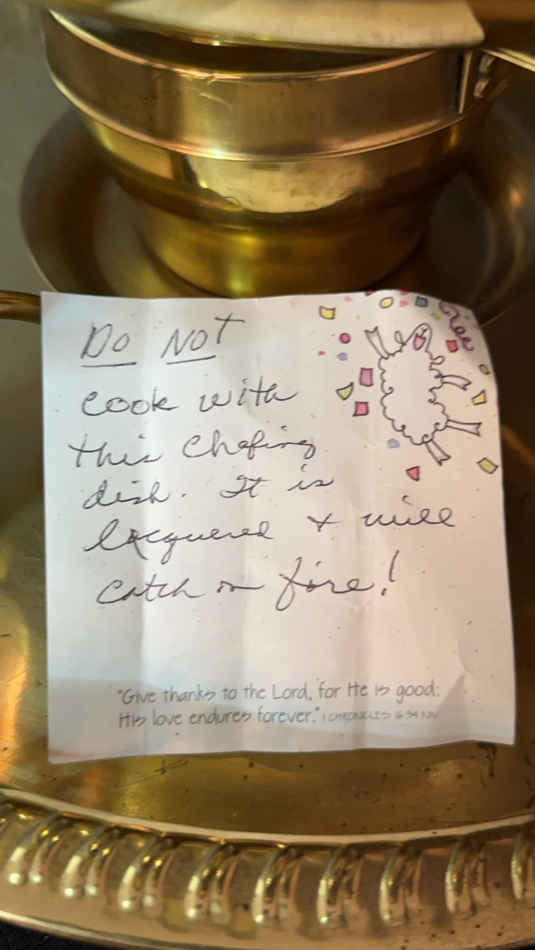 Do Not
cook with
this Chafing
dish. It is
lacquered & will
catch on fire!
"Give thanks to the Lord, for He is good;
His love endures forever." 1 CHRONICLES 16:34 NIV